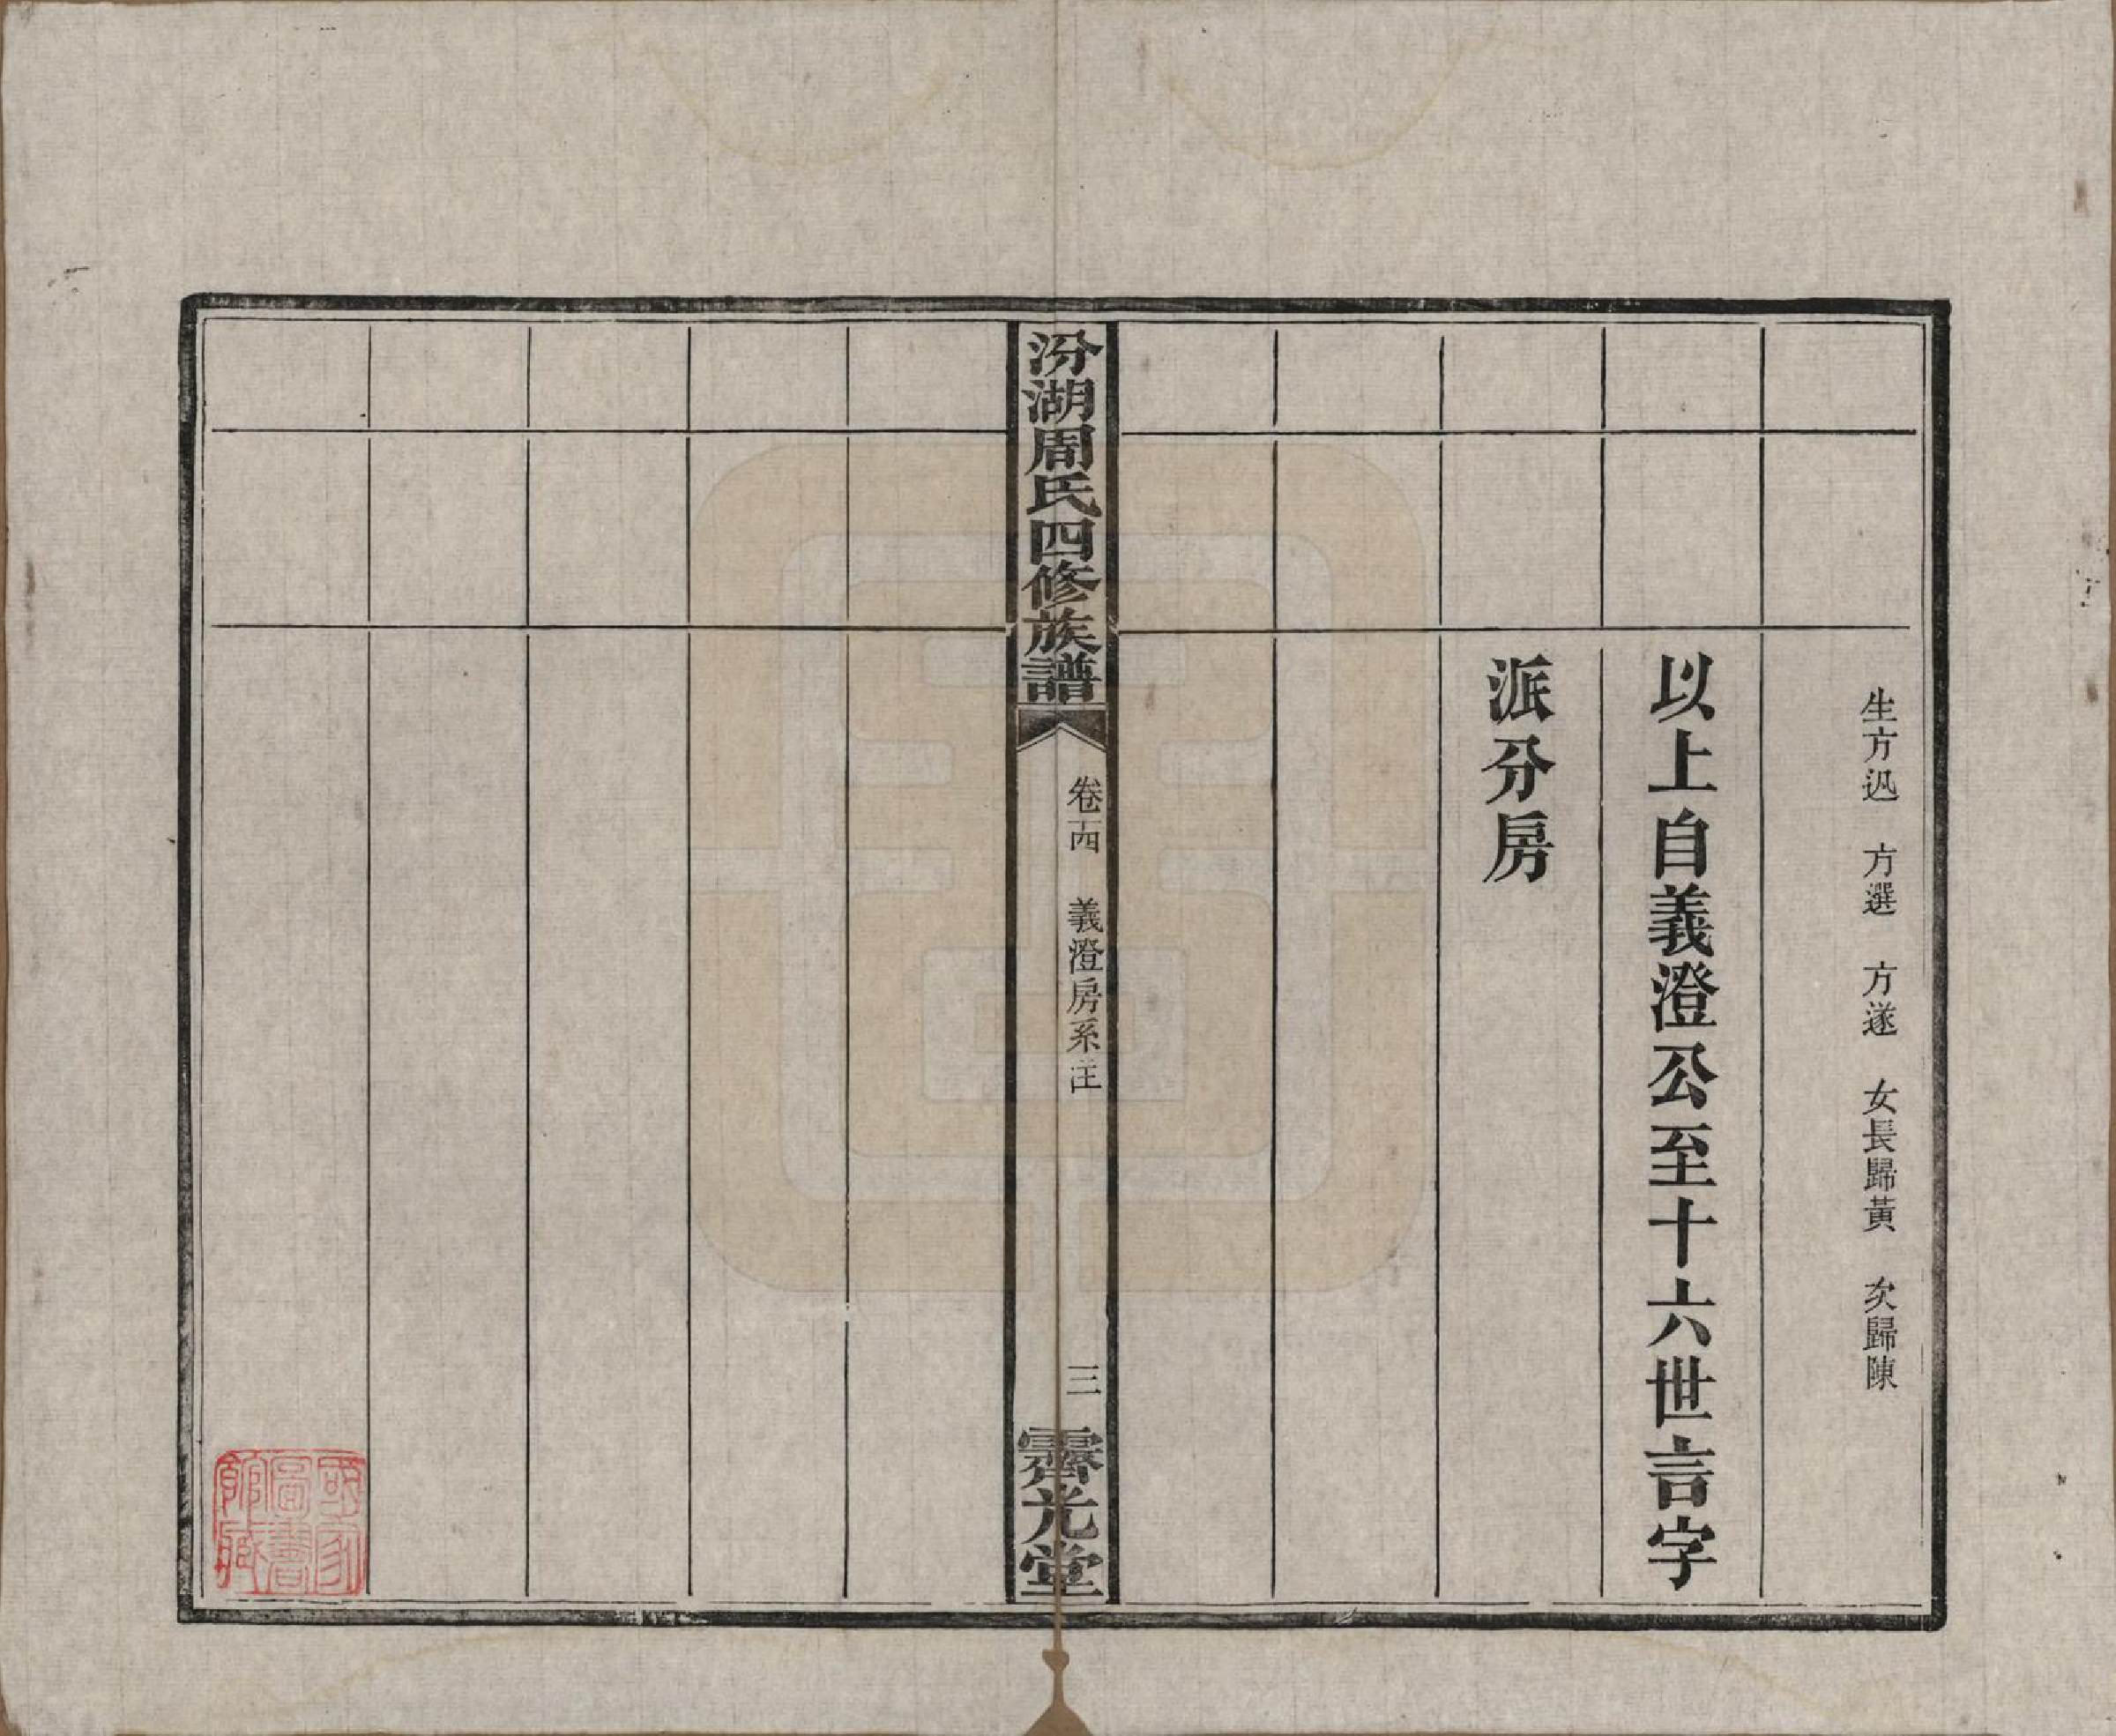 生方迅　方選　方遂　女長歸黃　次歸陳
以上自義澄公至十六世言字
派分房
汾湖周氏四修族譜
卷十四　義澄房系注
三
霽光堂
國家
圖書
館藏